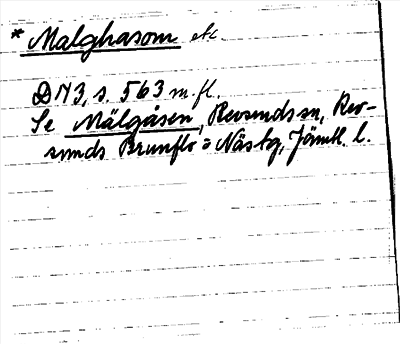 * Malghasom etc.
DN 3, s. 563 m. fl.
Se Mälgåsen, Revsunds sn, Rev-
sunds Brunflo o Näs tg, Jämtl. l.